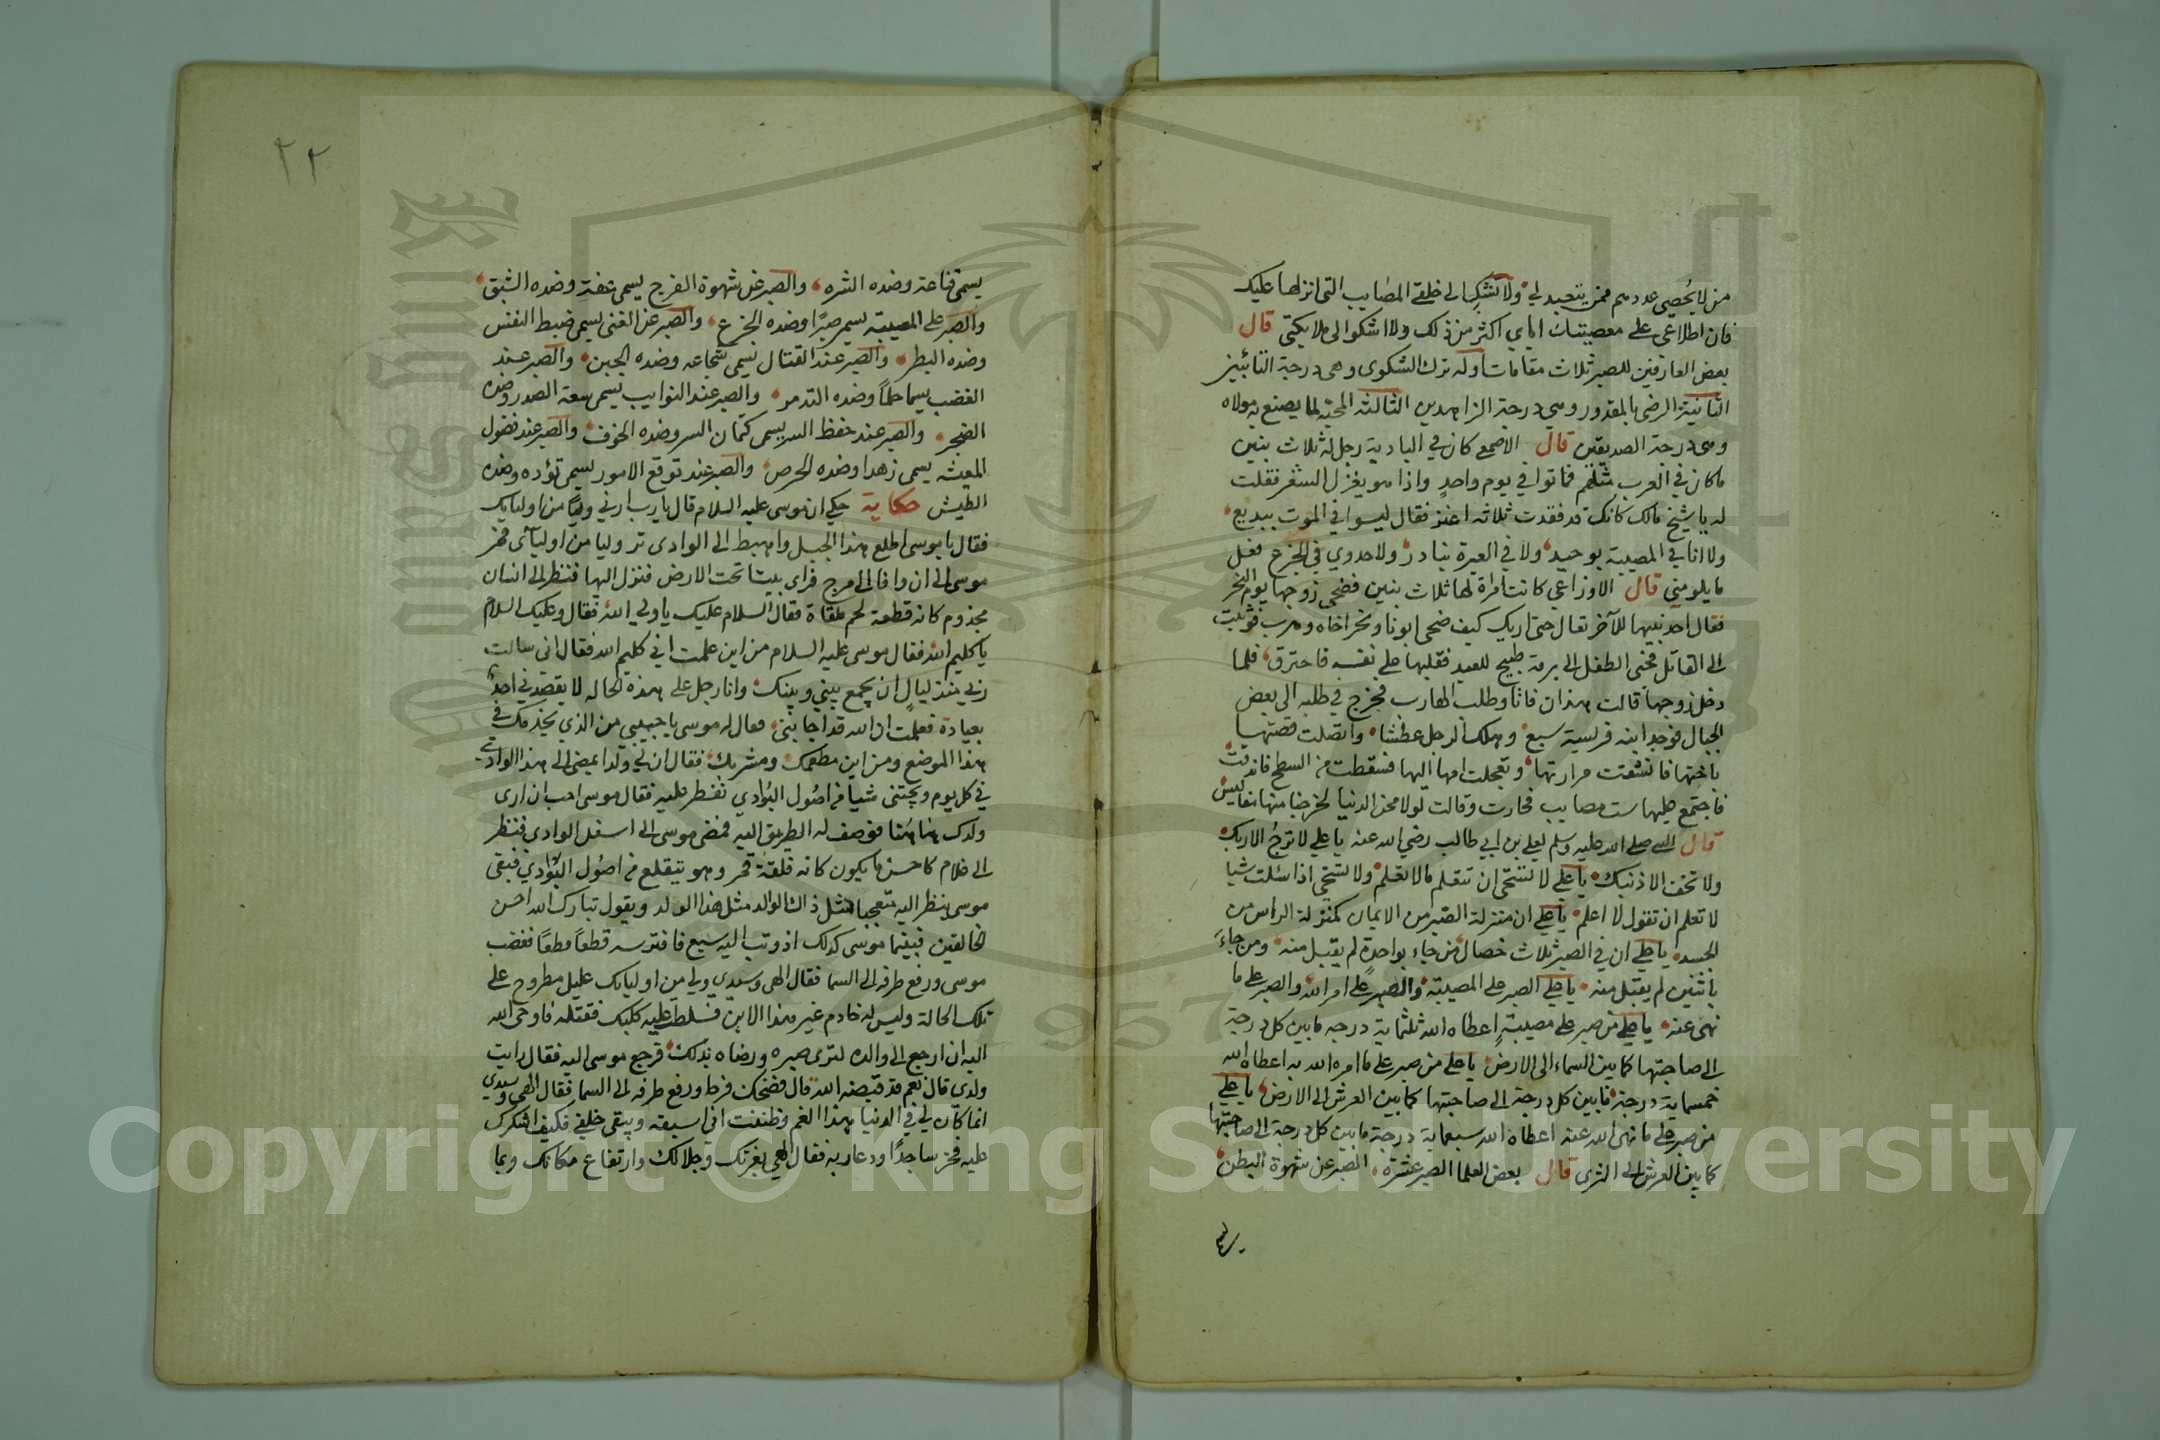 من لا يحصي عددهم ممن يتعبد لي ولا تشكها الى خلقي المصايب التي انزلها عليك
فان اطلاعي على معصيتك اياي اكثر من ذلك ولا اشكوا الى ملايكتي قال
بعض العارفين للصبر ثلاث مقامات اوله ترك الشكوى وهي درجة التائبين
الثانية الرضى بالمقدور وهي درجة الزاهدين الثالثه المحبه لما يصنع به مولاه
وهي درجة الصديقين قال الاصمعي كان في البادية رجل له ثلاث بنين
ما كان في العرب مثلهم فماتوا في يوم واحد واذا هو يغزل الشعر فقلت
له يا شيخ مالك كانك قد فقدت ثلاثه اعنز فقال ليسوا في الموت ببديع
ولا انا في المصيبة بوحيد ولا في العبرة بنادر ولا جدوي في الجزع فعل
ما يلومني قال الاوزاعي كانت امراة لها ثلاث بنين فضحى زوجها يوم النحر
فقال احد بنيها للاخر تعال حتى اريك كيف ضحى ابونا ونحر اخاه وهرب فوثبت
الى القاتل فجنى الطفل الى برمة طبيخ للعيد فقلبها على نفسه فاحترق فلما
دخل زوجها قالت هذان فاتا وطلب الهارب فخرج في طلبه الى بعض
الجبال فوجد ابنه فريسة سبع وهلك الرجل عطشا واتصلت قصتها
باختها فانشقت مرارتها وتعجلت امها اليها فسقطت من السطح فاندقت
فاجتمع عليها ست مصايب فحارت وقالت لولا محن الدنيا لخرجنا منها مفاليس
قال النبي صلى الله عليه وسلم لعلي بن ابي طالب رضي الله عنه يا علي لا ترج الا ربك
ولا تخف الا ذنبك يا علي لا تستحي ان تتعلم ما لا تعلم ولا تستحي اذا سئلت شيا
لا تعلم ان تقول لا اعلم يا علي ان منزلة الصبر من الايمان كمنزلة الراس من
الجسد يا علي ان في الصبر ثلاث خصال من جاء بواحدة لم يقبل منه ومن جاء
باثنين لم يقبل منه يا علي الصبر على المصيبة والصبر على امر الله والصبر على ما
نهى عنه يا علي من صبر على مصيبة اعطاه الله ثلثماية درجه ما بين كل درجة
الى صاحبتها كما بين السماء الى الارض يا علي من صبر على ما امره الله به اعطاه الله
خمسماية درجة ما بين كل درجة الى صاحبتها كما بين العرش الى الارض يا علي
من صبر على ما نهى الله عنه اعطاه الله سبعماية درجة ما بين كل درجة الى صاحبتها
كما بين العرش الى الثرى قال بعض العلما الصبر عشرة الصبر عن شهوة البطن
يسمى
٢٢
يسمى قناعة وضده الشره والصبر عن شهوة الفرج يسمى عفة وضده الشبق
والصبر على المصيبة يسمى صبرا وضده الجزع والصبر عن الغنى يسمى ضبط النفس
وضده البطر والصبر عند القتال يسمى شجاعه وضده الجبن والصبر عند
الغضب يسما حلما وضده التدمر والصبر عند النوايب يسمى سعة الصدر وضده
الضجر والصبر عند حفظ السر يسمى كتمان السر وضده الخرف والصبر عند فضول
المعيشه يسمى زهدا وضده الحرص والصبر عند توقع الامور يسمى تؤده وضده
الطيش حكاية حكي ان موسى عليه السلام قال يا رب ارني وليا من اوليايك
فقال يا موسى اطلع هذا الجبل واهبط الى الوادى تر وليا من اوليآى فمر
موسى الى ان وافا الى مرج فراى بيتا تحت الارض فنزل اليها فنظر الى انسان
مجذوم كانه قطعة لحم ملقاة فقال السلام عليك يا ولي الله فقال وعليك السلام
يا كليم الله فقال موسى عليه السلام من اين علمت اني كليم الله فقال اني سالت
ربي منذ ليال ان يجمع بيني وبينك وانا رجل على هذه الحاله لا يقصدني احد
بعيادة فعلمت ان الله قد اجابني فقال له موسى يا حبيبي من الذي يخدمك في
هذا الموضع ومن اين مطعمك ومشربك فقال ان لي ولدا يمضى الى هذا الوادي
في كل يوم ويجتنى شيا من اصول البوادي نفطر عليه فقال موسى احب ان ارى
ولدك هنا هنا فوصف له الطريق اليه فمضى موسى الى اسفل الوادى فنظر
الى غلام كاحسن ما يكون كانه فلقة قمر وهو يتقلع من اصول البوادي فبقى
موسى ينظر اليه متعجبا لمثل ذاك الوالد مثل هذا الولد ويقول تبارك الله احسن
الخالقين فبينما موسى كذلك اذ وثب اليه سبع فافترسه قطعا قطعا فغضب
موسى ورفع طرفه الى السما فقال الهى وسيدي ولي من اوليايك عليل مطروح على
تلك الحالة وليس له خادم غير هذا الابن فسلطت عليه كلبك فقتله فاوحى الله
اليه ان ارجع الى والده لترى صبره ورضاه بذلك فرجع موسى اليه فقال رايت
ولدى قال نعم قد قبضه الله قال فضحك فرط ورفع طرفه الى السما فقال الهى وسيدي
انما كان لي في الدنيا هذا الغم وظننت اني اسبقه ويبقى خلفي فكيف اشكرك
عليه فخر ساجدا ودعا ربه فقال الهي بعزتك وجلالك وارتفاع مكانك وبما
Copyright © King Saud University
1957